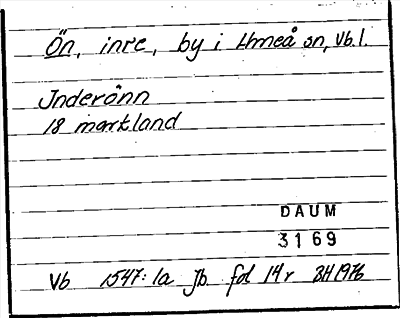 Ön, inre, by i Umeå sn, Vb. l.
Inderönn
18 markland
DAUM
3169
Vb 1547:1a jb fol 14 r BH 1976